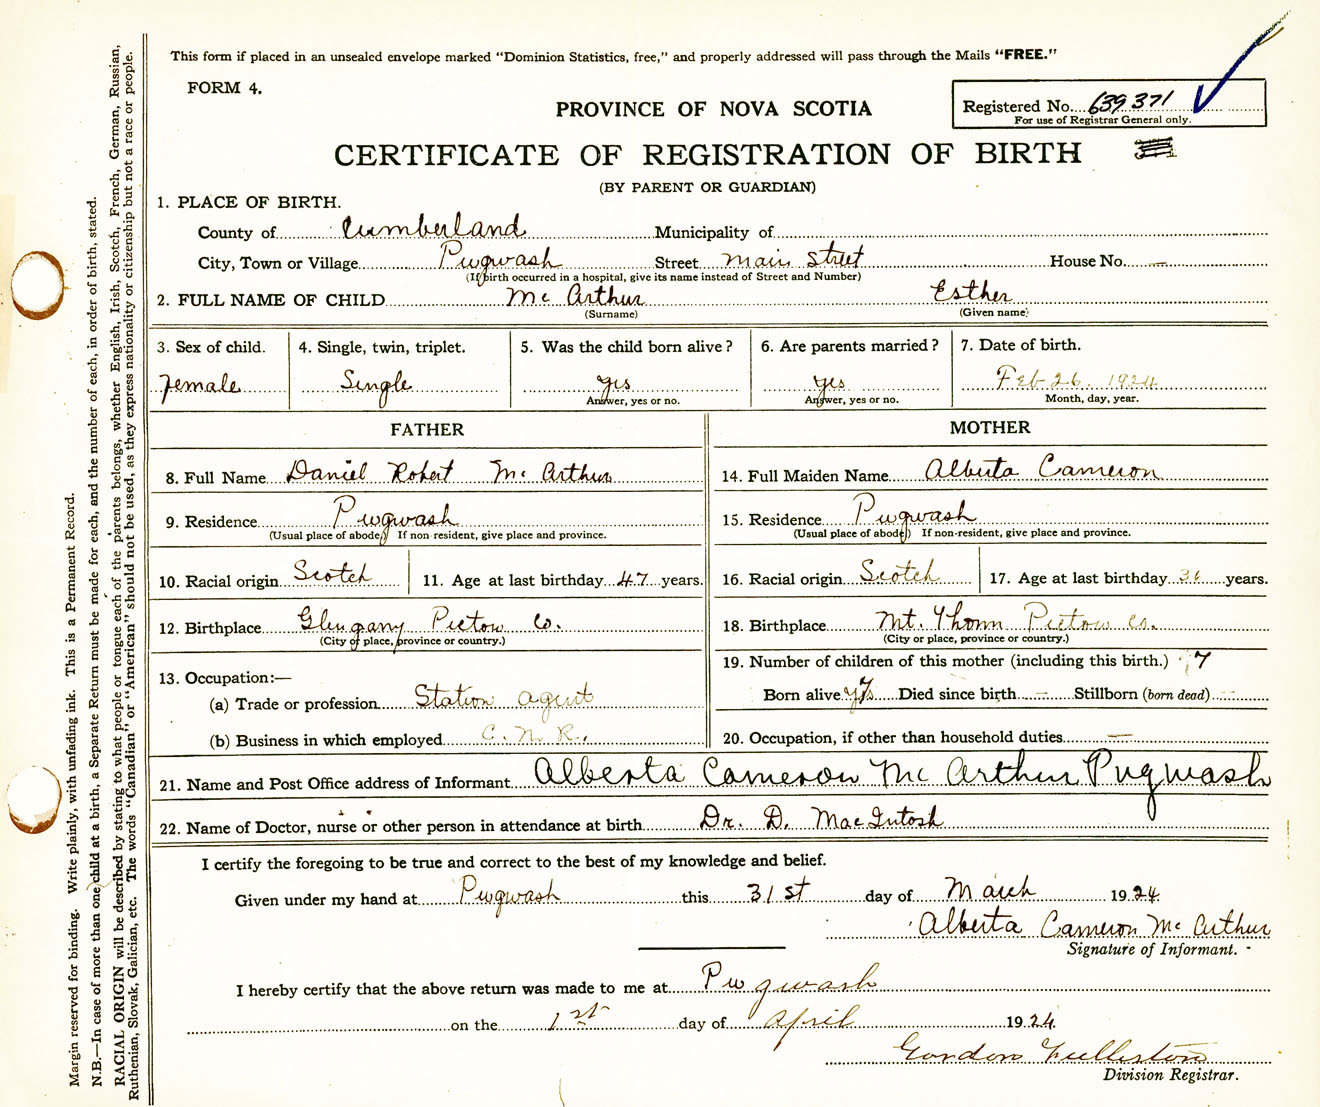 This form if placed in an unsealed envelope marked "Dominion Statistics, free," and properly addressed will pass through the Mails "FREE."
FORM 4.
PROVINCE OF NOVA SCOTIA
Registered No. 639371
For use of Registrar General only.
CERTIFICATE OF REGISTRATION OF BIRTH
(BY PARENT OR GUARDIAN)
1. PLACE OF BIRTH.
County of Cumberland Municipality of
City, Town or Village Pugwash Street Main Street House No. —
(If birth occurred in a hospital, give its name instead of Street and Number)
2. FULL NAME OF CHILD Mc Arthur Esther
(Surname) (Given name)
3. Sex of child. 4. Single, twin, triplet. 5. Was the child born alive? 6. Are parents married? 7. Date of birth.
Female Single yes yes Feb 26. 1924
Answer, yes or no. Answer, yes or no. Month, day, year.
FATHER MOTHER
8. Full Name Daniel Robert Mc Arthur 14. Full Maiden Name Alberta Cameron
9. Residence Pugwash 15. Residence Pugwash
(Usual place of abode) If non-resident, give place and province. (Usual place of abode) If non-resident, give place and province.
10. Racial origin Scotch 11. Age at last birthday 47 years. 16. Racial origin Scotch 17. Age at last birthday years.
12. Birthplace Glengarry Pictou Co. 18. Birthplace Mt. Thom Pictou Co.
(City or place, province or country.) (City or place, province or country.)
19. Number of children of this mother (including this birth.) 7
13. Occupation:—
(a) Trade or profession Station agent Born alive 7 Died since birth — Stillborn (born dead) —
(b) Business in which employed C. N. R. 20. Occupation, if other than household duties —
21. Name and Post Office address of Informant Alberta Cameron Mc Arthur Pugwash
22. Name of Doctor, nurse or other person in attendance at birth Dr. D. MacIntosh
I certify the foregoing to be true and correct to the best of my knowledge and belief.
Given under my hand at Pugwash this 31st day of March 1924
Alberta Cameron Mc Arthur
Signature of Informant.
I hereby certify that the above return was made to me at Pugwash
on the 1st day of April 1924
Gordon Fullerton
Division Registrar.
Margin reserved for binding. Write plainly, with unfading ink. This is a Permanent Record.
N.B.—In case of more than one child at a birth, a Separate Return must be made for each, and the number of each, in order of birth, stated.
RACIAL ORIGIN will be described by stating to what people or tongue each of the parents belongs, whether English, Irish, Scotch, French, German, Russian,
Ruthenian, Slovak, Galician, etc. The words "Canadian" or "American" should not be used, as they express nationality or citizenship but not a race or people.